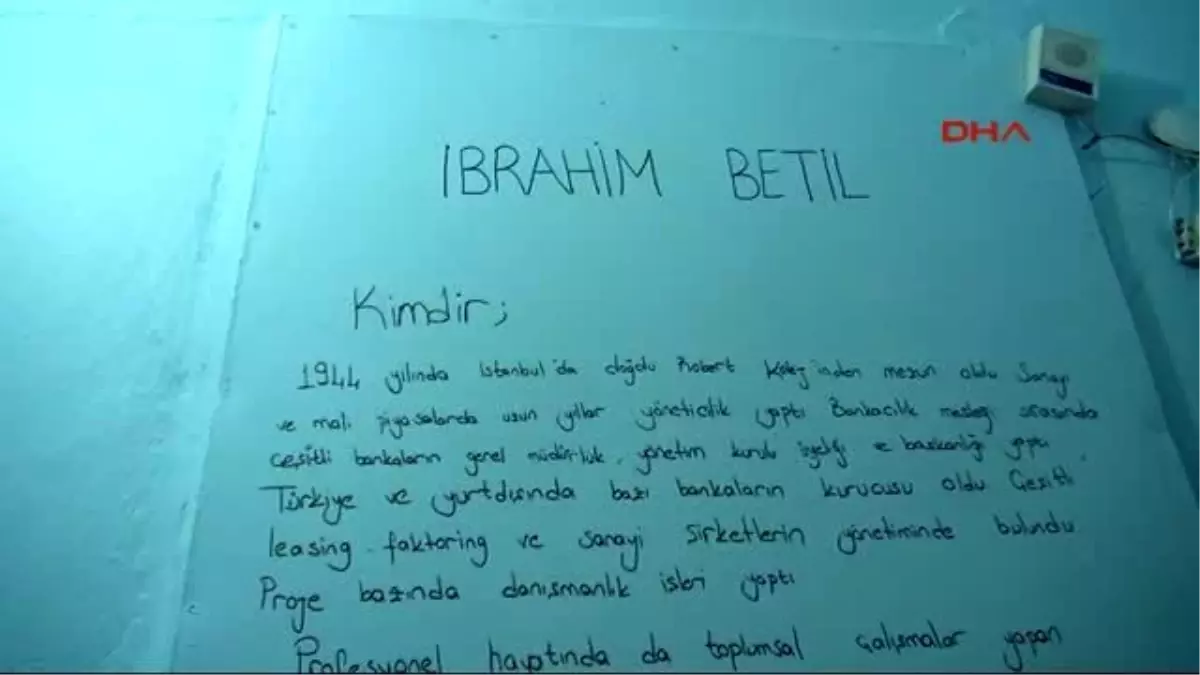 DHA
İBRAHİM BETİL
Kimdir;
1944 yılında İstanbul'da doğdu Robert Kolej'inden mezun oldu Sanayi
ve mali piyasalarda uzun yıllar yöneticilik yaptı Bankacılık mesleği sırasında
çeşitli bankaların genel müdürlük, yönetim kurulu üyeliği ve başkanlığı yaptı
Türkiye ve yurtdışında bazı bankaların kurucusu oldu Çeşitli
leasing, faktoring ve sanayi şirketlerin yönetiminde bulundu
Proje bazında danışmanlık işleri yaptı
Profesyonel hayatında da toplumsal çalışmalar yapan